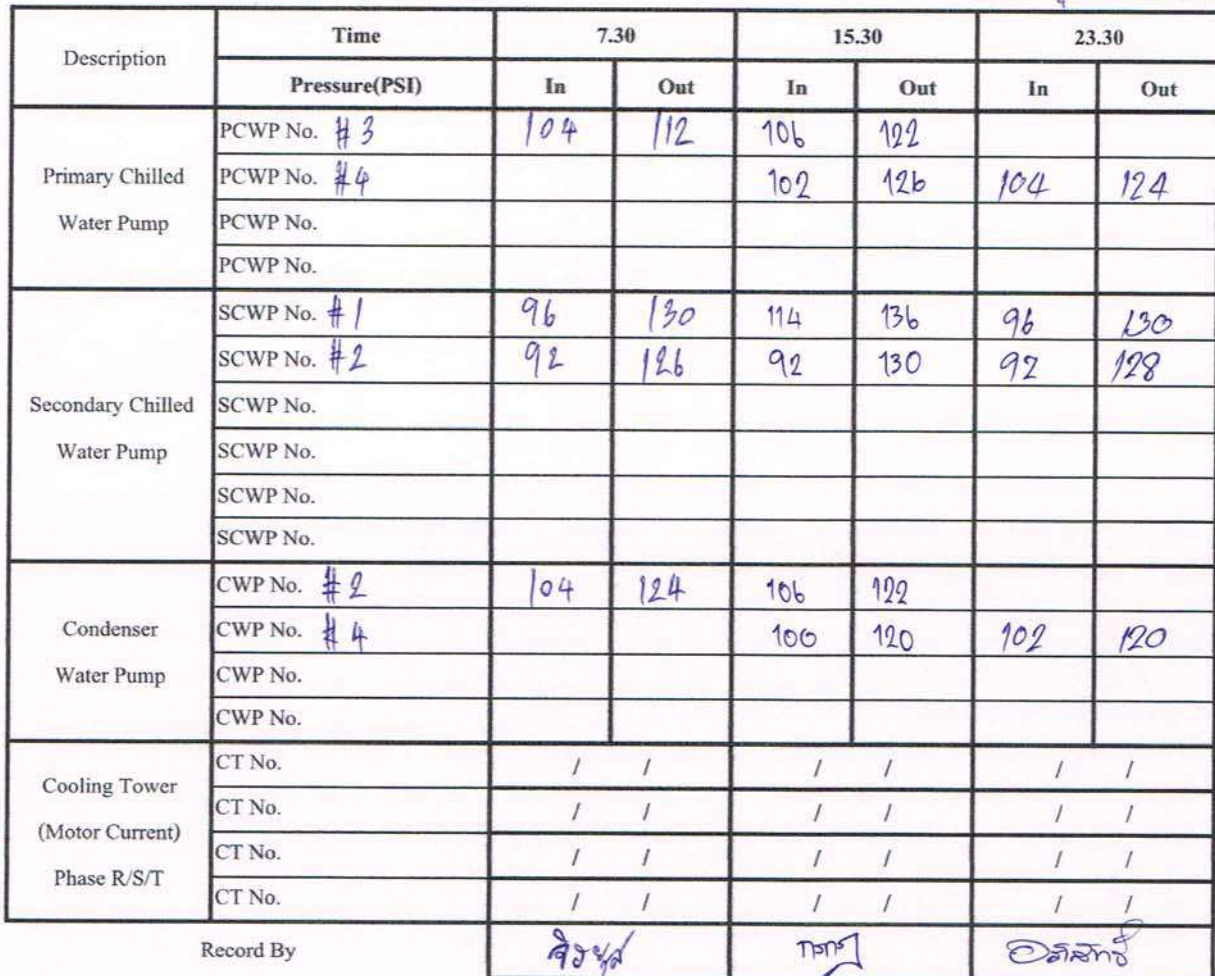 Description Time 7.30 15.30 23.30
Pressure(PSI) In Out In Out In Out
Primary Chilled Water Pump
PCWP No. #3 104 112 106 122
PCWP No. #4 102 126 104 124
PCWP No.
PCWP No.
Secondary Chilled Water Pump
SCWP No. #1 96 130 114 136 96 130
SCWP No. #2 92 126 92 130 92 128
SCWP No.
SCWP No.
SCWP No.
SCWP No.
Condenser Water Pump
CWP No. #2 104 124 106 122
CWP No. #4 100 120 102 120
CWP No.
CWP No.
Cooling Tower (Motor Current) Phase R/S/T
CT No. / / / / / /
CT No. / / / / / /
CT No. / / / / / /
CT No. / / / / / /
Record By